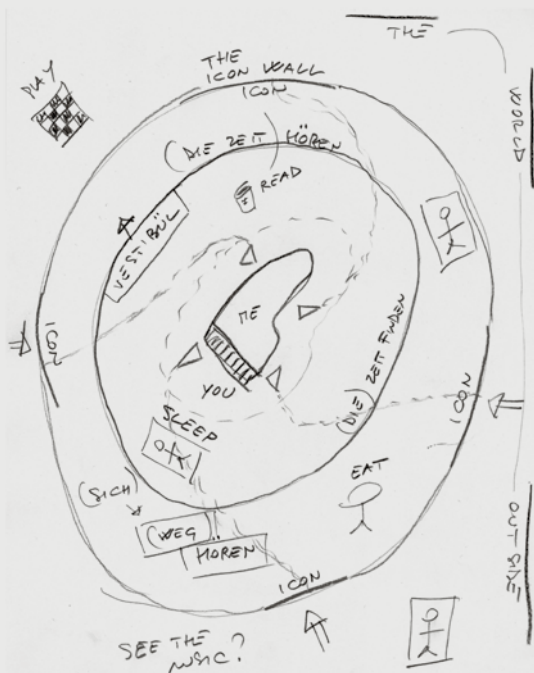 THE
PLAY
THE
ICON WALL
ICON
WORLD
(DIE ZEIT) HÖREN
READ
VESTIBÜL
ME
ICON
(DIE) ZEIT FINDEN
YOU
ICON
SLEEP
EAT
(SICH)
(WEG)
HÖREN
ICON
OUTSIDE
SEE THE
MUSIC?